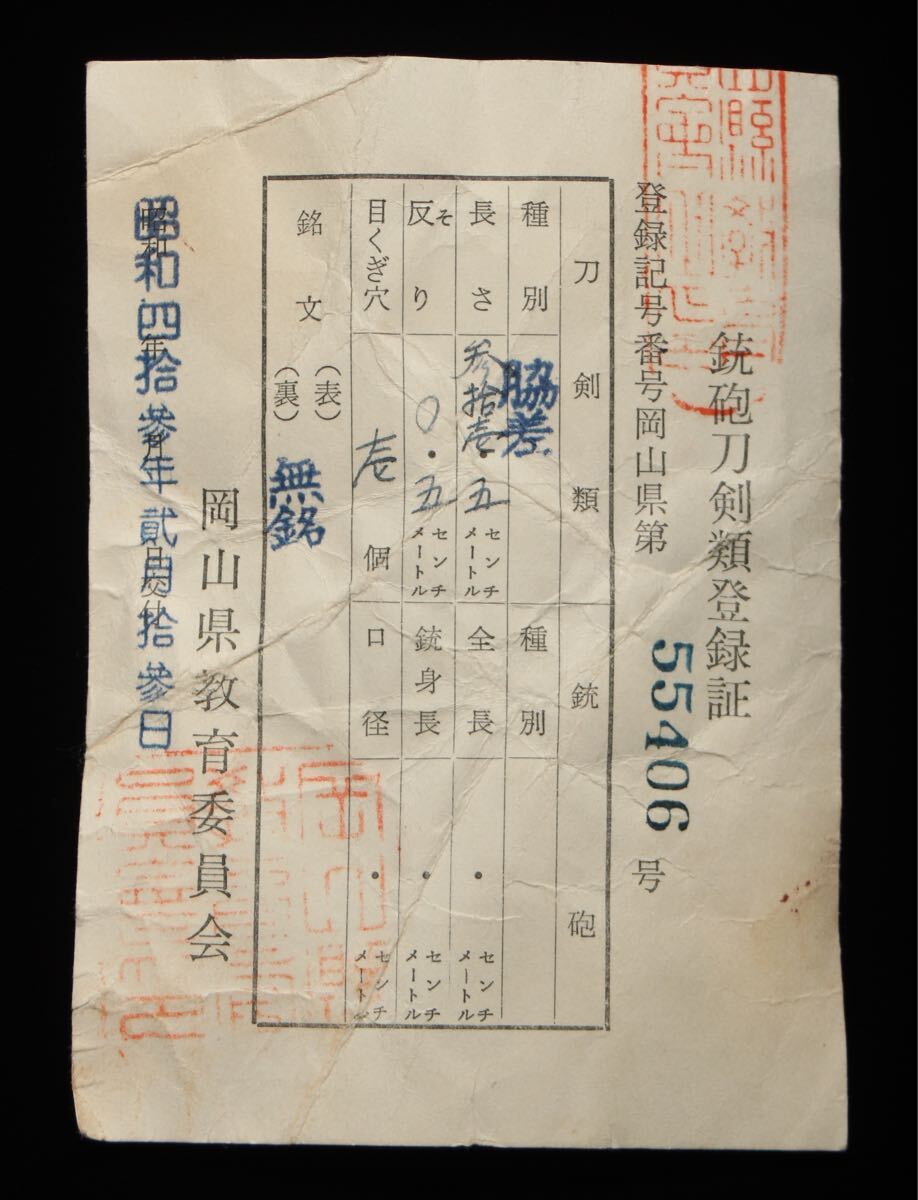 銃砲刀剣類登録証
登録記号番号岡山県第 55406 号
刀剣類
種別 脇差
長さ 参拾壱・五 センチメートル
反り そ 〇・五 センチメートル
目くぎ穴 壱 個
銃砲
種別
全長 ・ センチメートル
銃身長 ・ センチメートル
口径 ・ センチメートル
銘文 (表) 無銘
(裏)
岡山県教育委員会
昭和 年 月 日交付
昭和四拾参年貳月拾参日